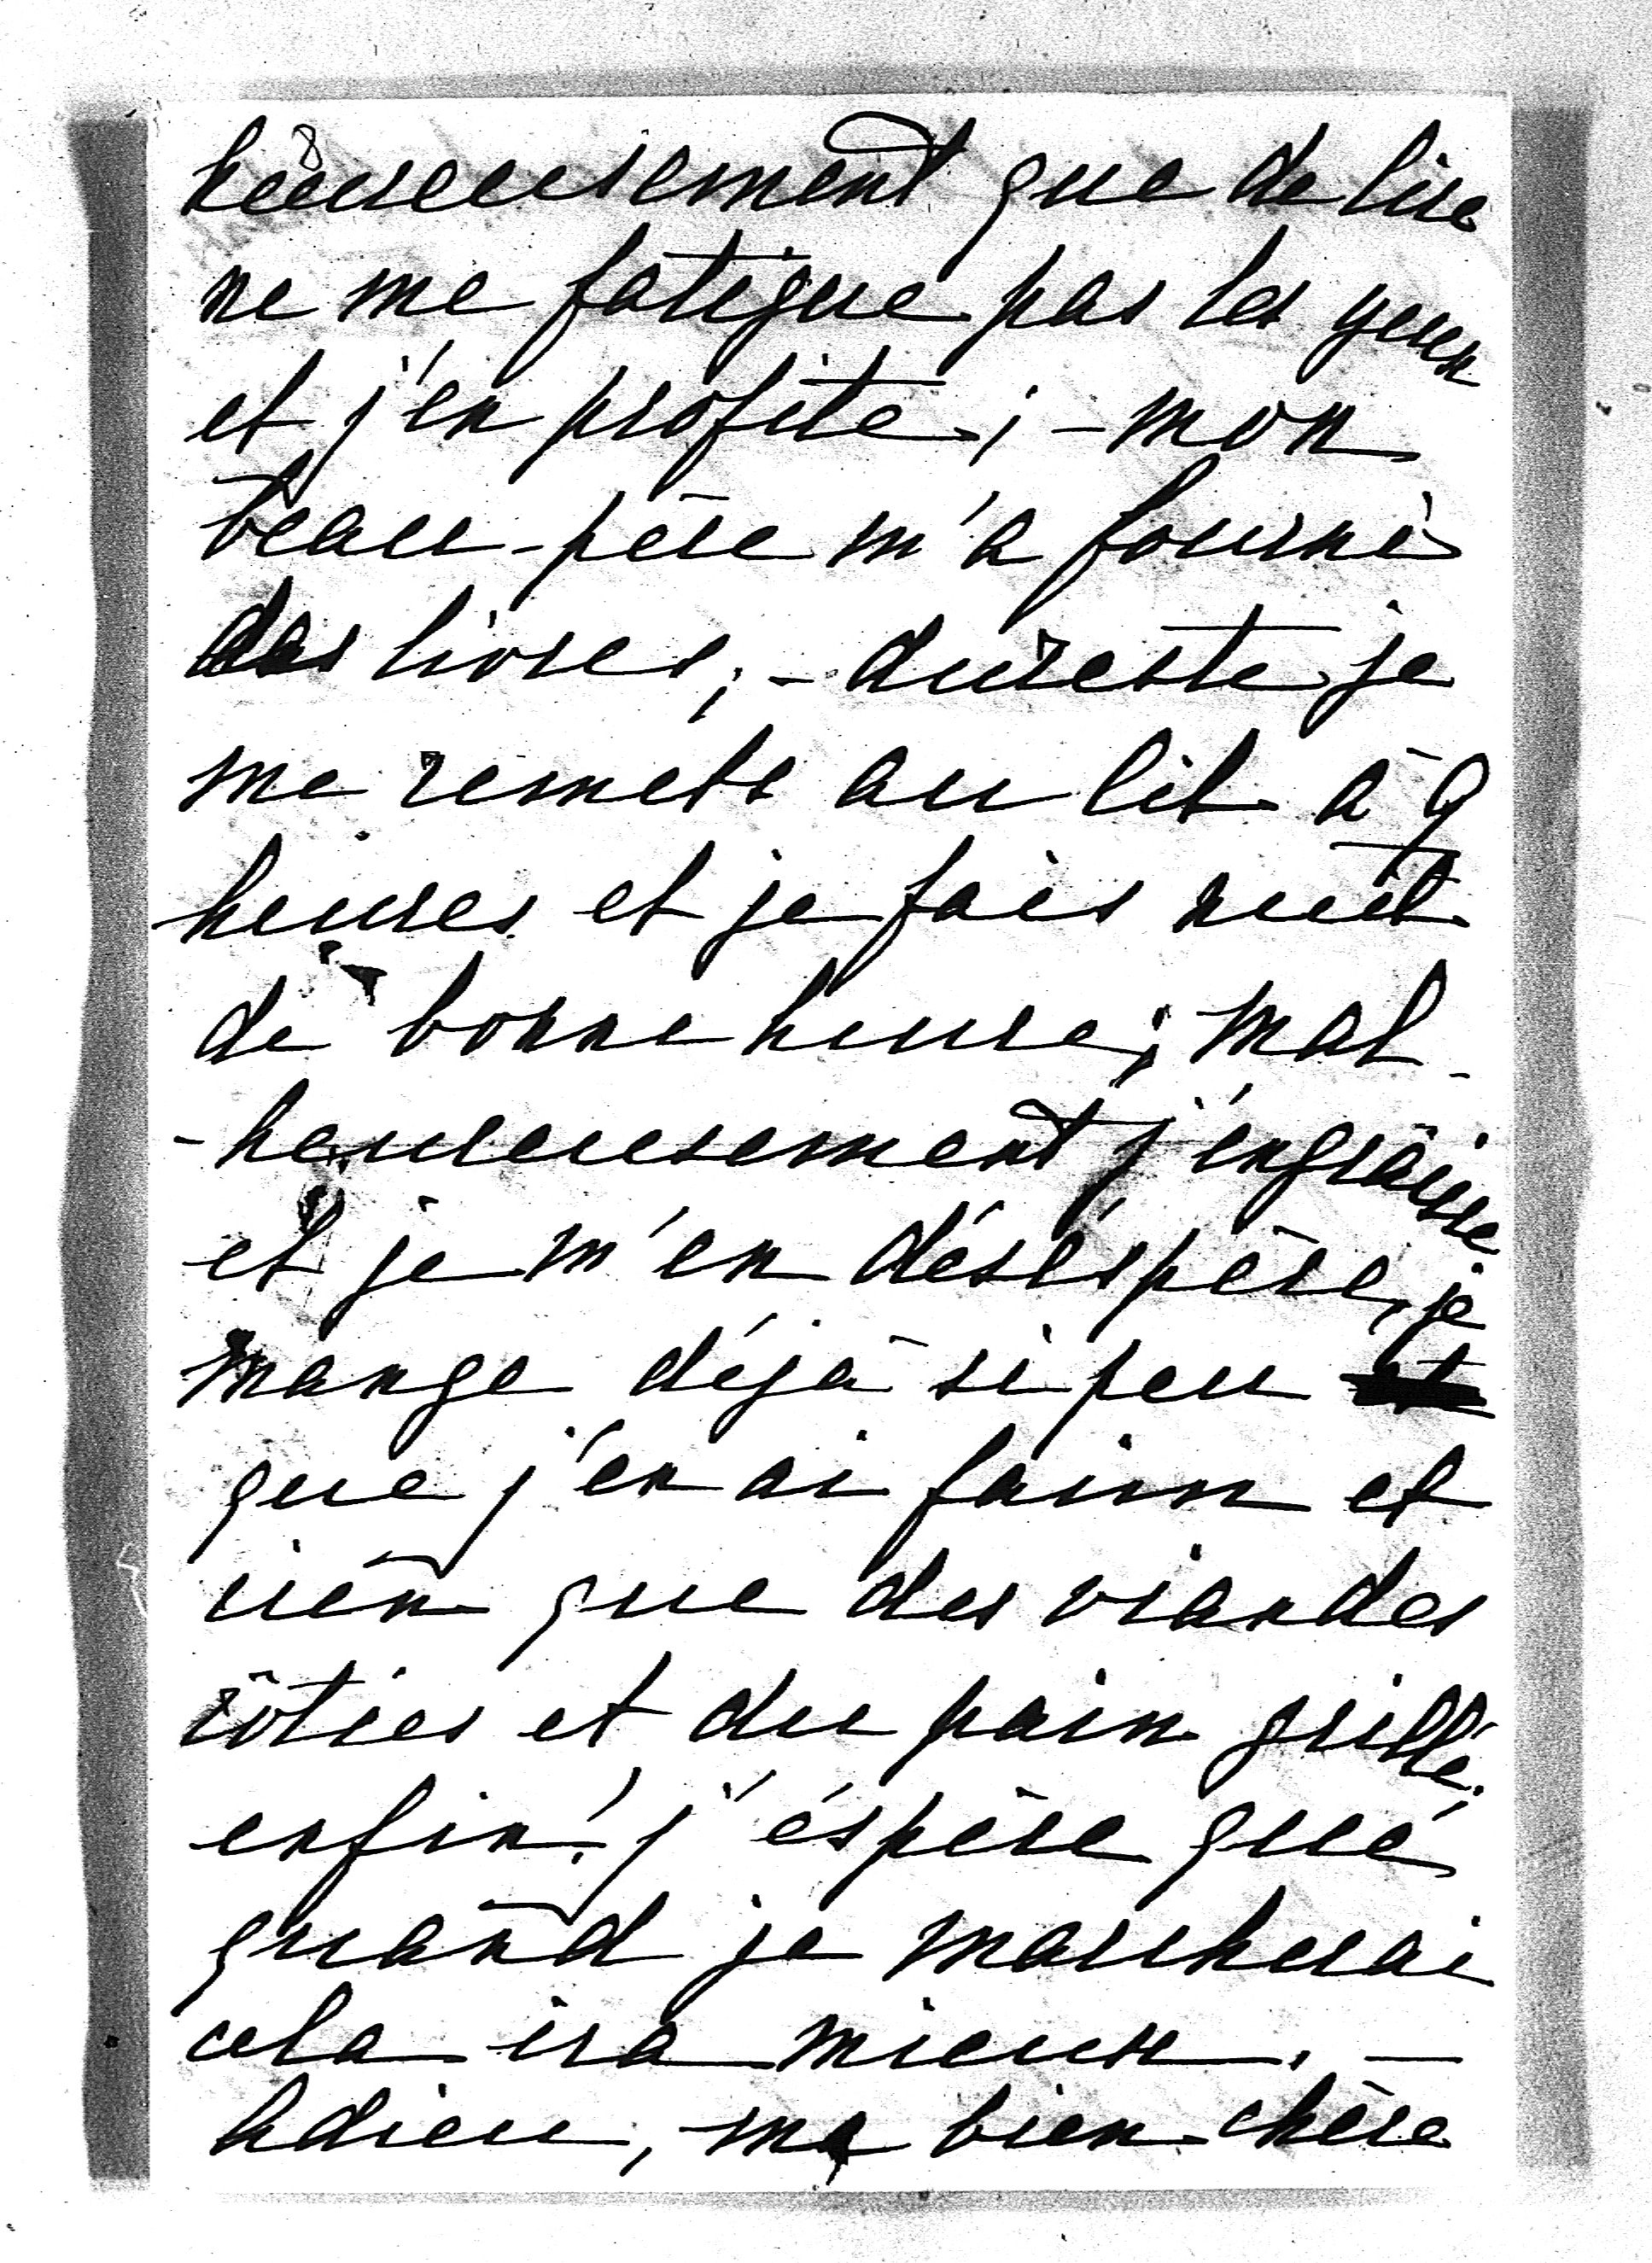 heureusement que de lire
ne me fatigue pas les yeux
et j'en profite ; – mon
beau-père m'a fourni
des livres ; – dureste je
me remets au lit à 9
heures et je fais nuit
de bonne heure ; mal-
-heureusement j'engraisse
et je m'en désésper̀e, je
mange déjà si peu et
que j'en ai faim et
rien que des viandes
rôties et du pain grillé ;
enfin ! j'éspère que
quand je marcherai
cela ira mieux. –
Adieu, ma bien chère